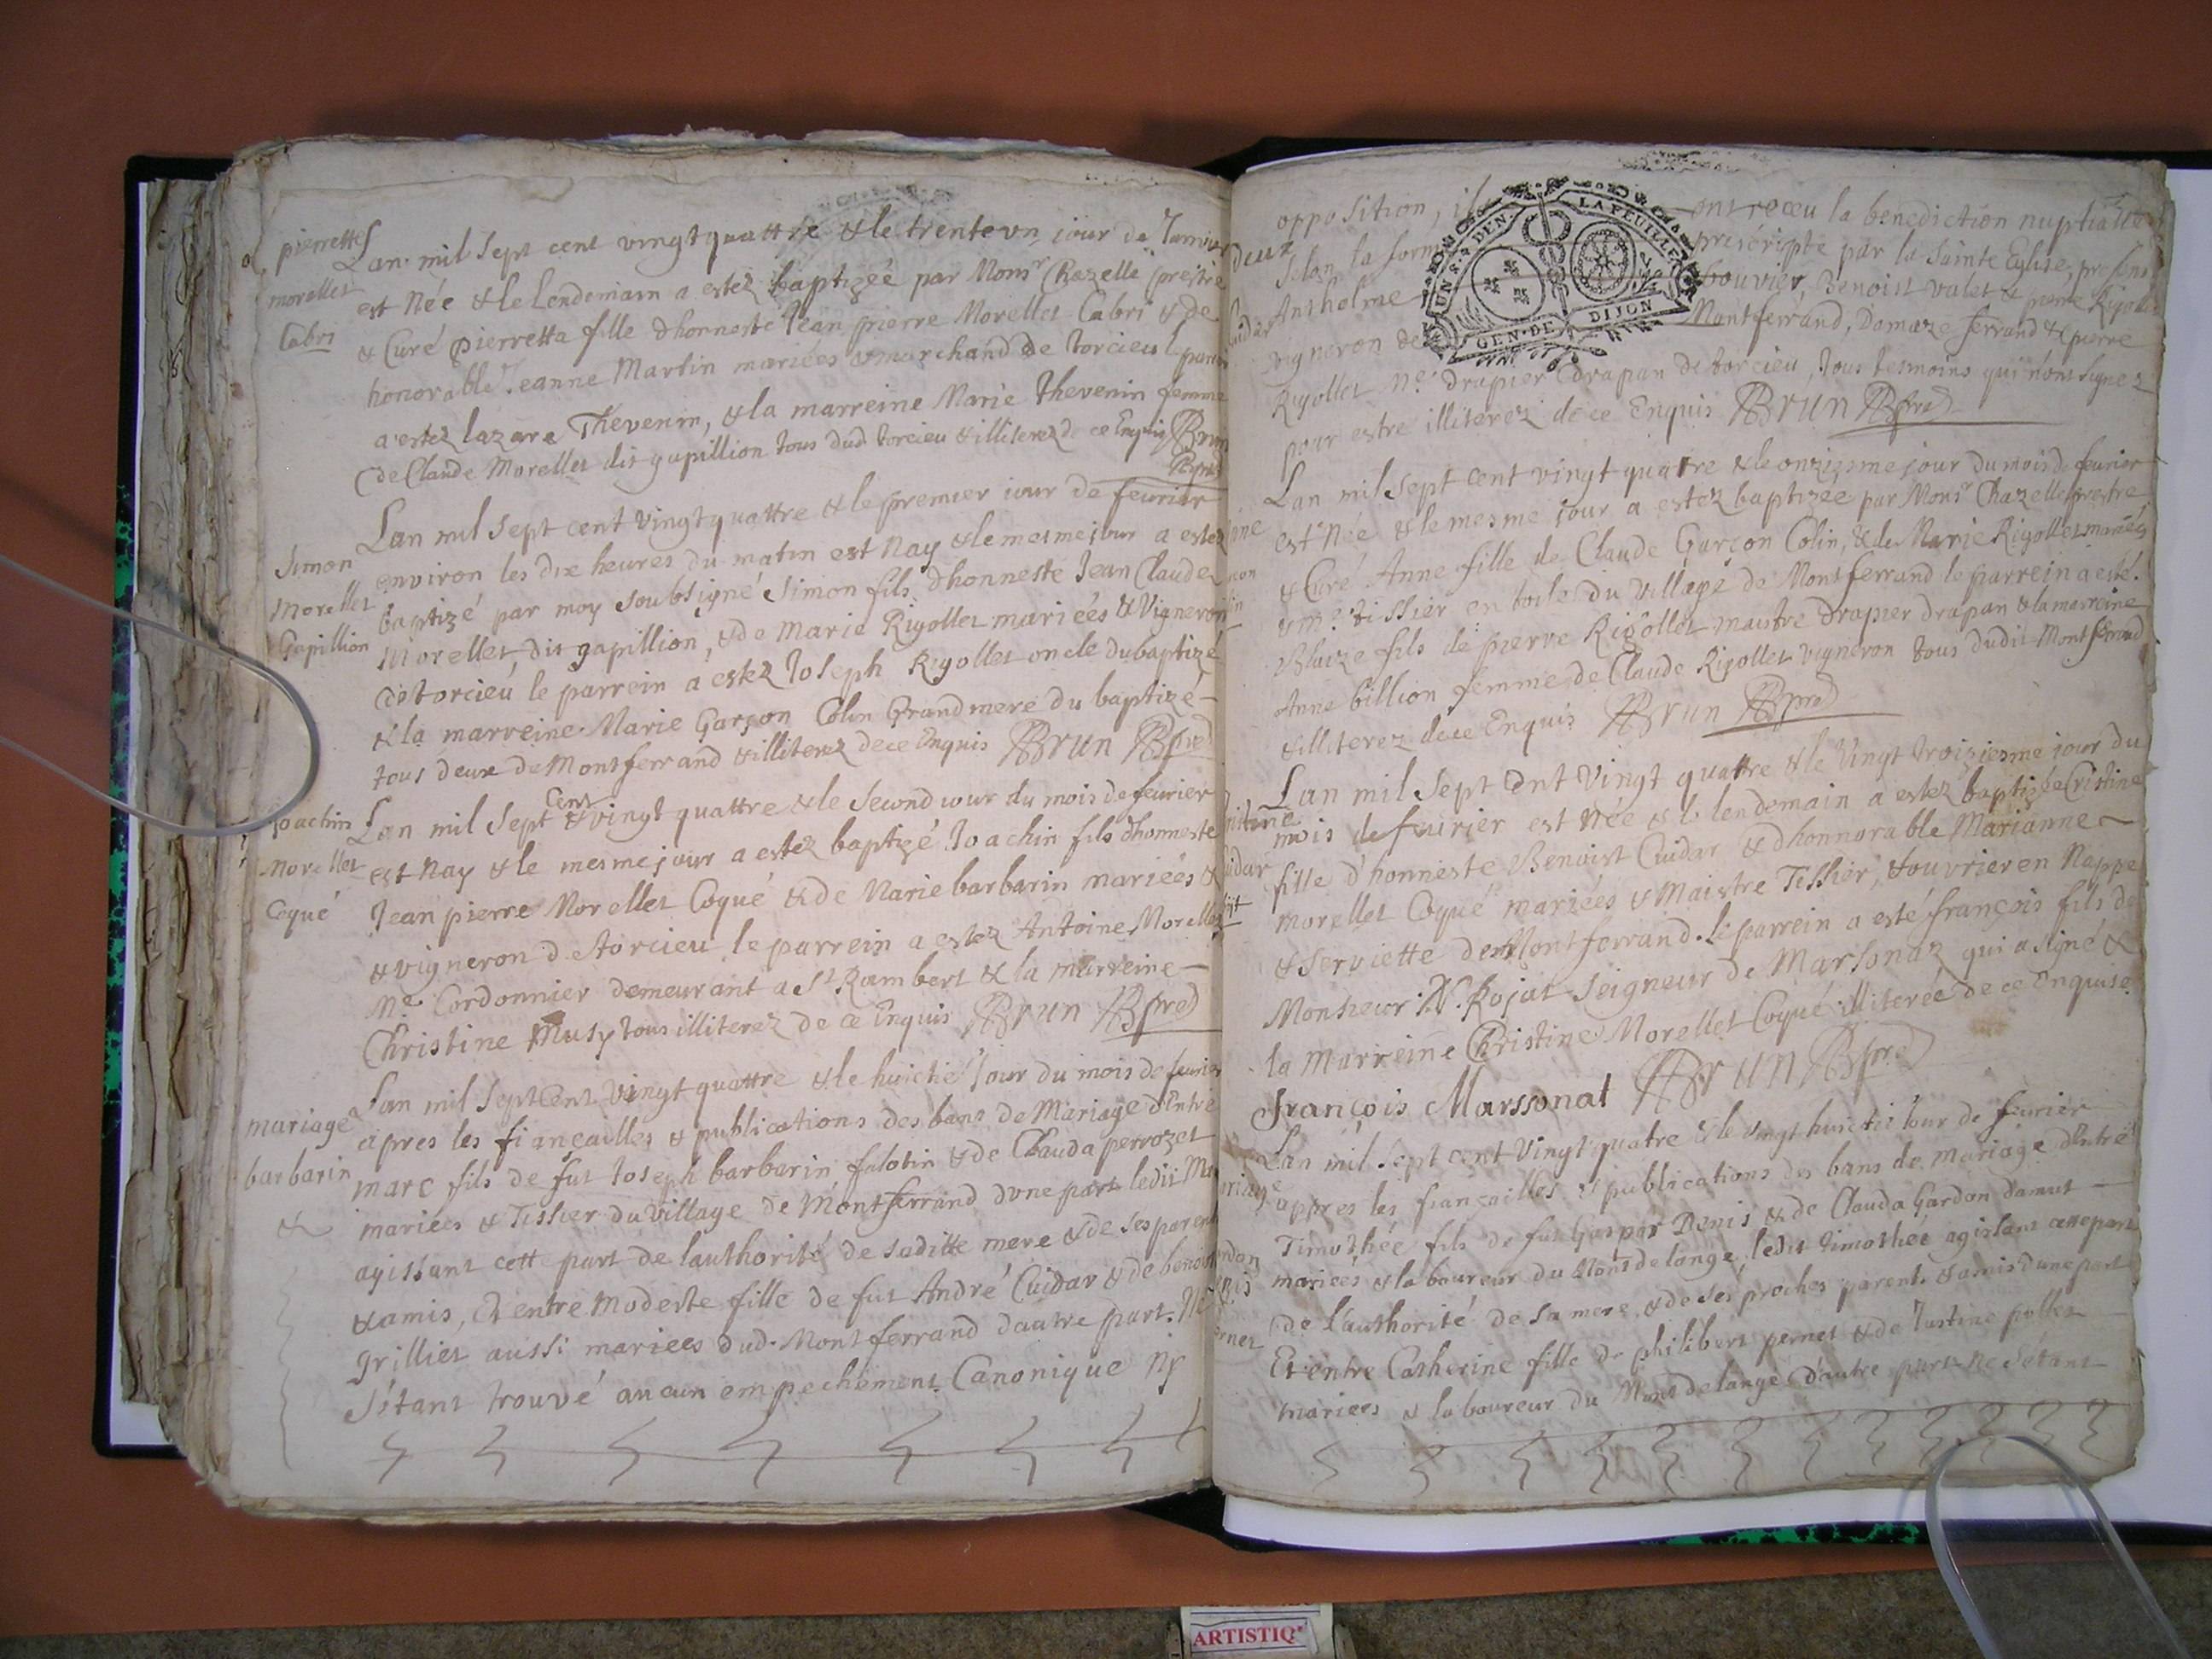 pierrette
morellet
Cabri
Lan mil Sept cent vingt quattre & le trente vn jour de Janvier
est Née & le lendemain a estez baptizée par Monsr Chazelle prestre
& Curé pierretta fille dhonneste Jean pierre Morellet Cabri & de
honorable Jeanne Martin mariées & marchand de torcieu le parein
a estez lazare Thevenin, & la marreine Marie thevenin femme
de Claude Morellet dit gapillion tous dud torcieu & illiterez de ce Enquis Brun
Simon
Morellet
Gapillion
Lan mil Sept cent Vingt quattre & le premier iour de feurier
environ les dix heures du matin est Nay & le mesme jour a estez
baptizé par moy soubsigné Simon fils dhonneste Jean Claude
Morellet, dit gapillion, & de Marie Rigollet mariées & Vigneron
de torcieu le parrein a estez Joseph Rigollet oncle du baptizé
& la marreine Marie Garson Colin Grand mere du baptizé
tous deux de Montferrand & illiterez de ce Enquis Brun
Joachin
Morellet
Coqué
Lan mil Sept Cent & vingt quattre & le Second iour du mois de feurier
est Nay & le mesme jour a estez baptizé Joachin fils dhonneste
Jean pierre Morellet Coqué & de Marie barbarin mariées &
& vigneron de torcieu le parrein a estez Antoine Morellet
Me Cordonnier demeurant a St Rambert & la marreine
Christine Musy tous illiterez de ce Enquis Brun
mariage
barbarin
&
Lan mil Sept Cent Vingt quattre & le huictie Jour du mois de feurier
apres les fiançailles & publications des bans de Mariage dEntre
marc fils de fut Joseph barbarin falotin & de Clauda perrozet
mariées & Tissier du Village de Montferrand dune part ledit Ma
agissant cett part de lauthorité de saditte mere & de ses parents
& amis, Et entre Modeste fille de fut André Cuidar & de benoiste
grilliet aussi mariees dud. Montferrand dautre part. Ne
s'étant trouvé aucun empechement Canonique ny
opposition, ils ont receu la benediction nuptialle
selon la forme prescripte par la Sainte Eglise, presens
Antholme bouvier, Benoist valet & pierre Rigollet
vigneron de Montferrand, Damaze ferrand & pierre
Rigollet Me drapier drapan de torcieu, tous tesmoins qui n'ont signez
pour estre illiterez de ce Enquis Brun
UN S. 4 DEN. LA FEUILLE
GEN. DE DIJON
Lan mil Sept cent vingt quatre & le onziesme jour du mois de feurier
est Née & le mesme jour a estez baptizée par Monsr Chazelle prestre
& Curé Anne fille de Claude Garçon Colin, & de Marie Rigollet mariées
& me tissier en toiles du Village de Montferrand le parrein a esté
Blaize fils de pierre Rigollet maistre drapier drapan & la marreine
Anne billion femme de Claude Rigollet vigneron tous dudit Montferrand
& illiterez de ce Enquis Brun
Lan mil Sept Cent Vingt quattre & le Vingt troiziesme jour du
mois de feurier est Née & le lendemain a estez baptizée Cristine
fille d'honneste Benoist Cuidar & dhonnorable Marianne
morellet Coqué mariées & Maistre Tissier, & ouvrier en Nappe
& Serviette de Montferrand. le parrein a esté françois fils de
Monsieur N. Rojat Seigneur de Marsonaz qui a signé &
la Marreine Christine Morellet Coqué illiterée de ce Enquise
François Marssonat Brun
Lan mil Sept cent Vingt quatre & le Vingt huictie iour de feurier
appres les fiançailles & publications des bans de mariage dEntre
Timothée fils de fut Gaspar Denis & de Clauda Gardon damut
mariées & laboureur du Mont de lange, ledit timothée agissant cette part
de l'authorité de sa mere, & de ses proches parents & amis dune part
Et entre Catherine fille de philibert pernet & de Justine pollet
mariees & laboureur du Mont de lange d'autre part Ne s'étant
ARTISTIQ